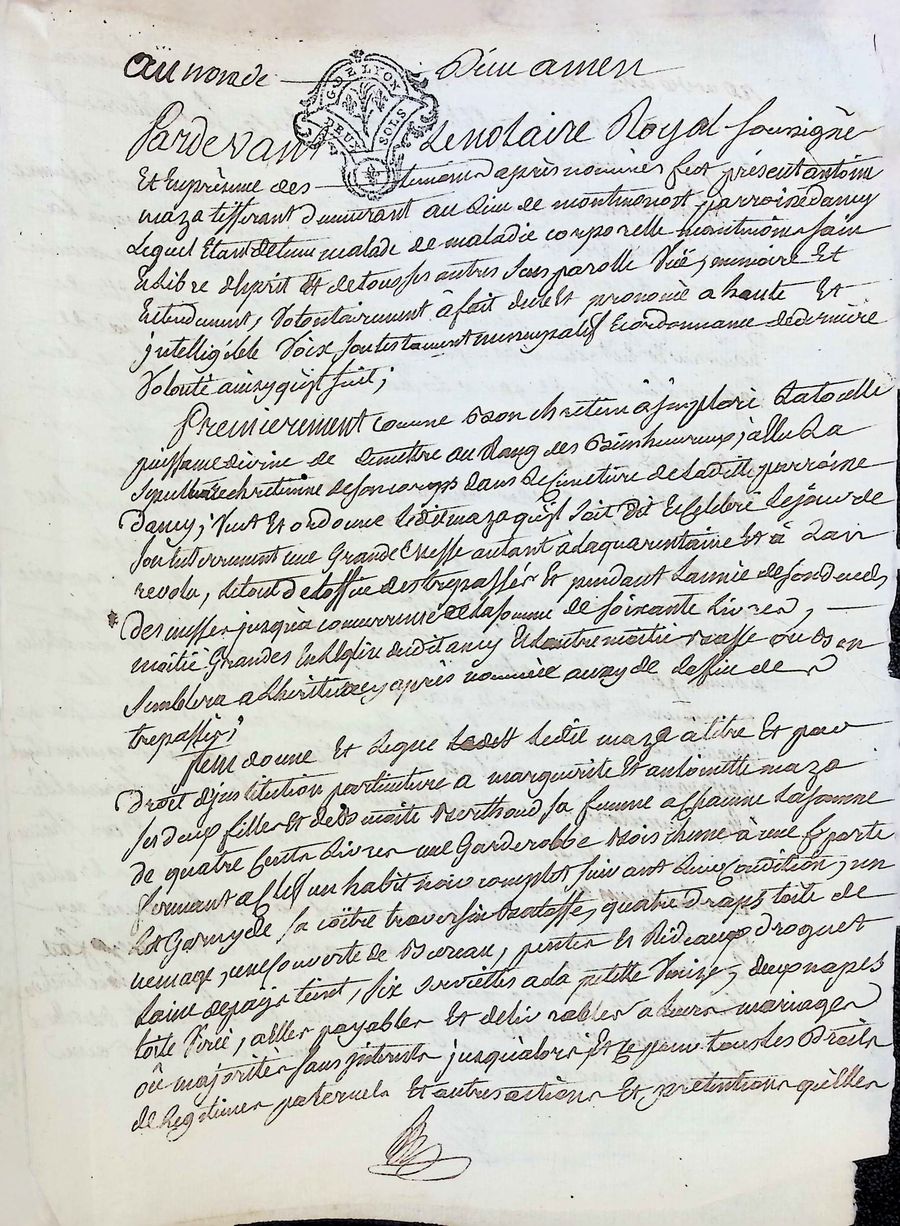 Au nom de Dieu amen
G. DE LYON
DEUX SOLS
Pardevant Le notaire Royal soussigné
Et En présence des temoins après nommés fut présent antoine
maza tisserant demeurant au Lieu de parroisse dancy
Lequel Etant detenu malade de maladie corporelle neantmoins sain
Et Libre desprit Et de tous ses autres sens parolle Vüe, memoire Et
Entendement, Volontairement à fait dicté Et prononcé a haute Et
jntelligible Voix son testament nuncupatif Et ordonnance de derniere
Volonté ainsy qu'il suit;
Premierement comme Bon chretien à jmploré La toutte
puissance divine de Le mettre au Rang des Bienheureux, à Elu La
Sepulture chretienne de son corps dans Le cimetiere de Laditte parroisse
dancy, Veut Et ordonne Ledit maza qu'il soit dit Et celebré Le jour de
son Enterrement une Grande messe autant à la quarentaine Et à Lan
revolu, Le tout de Loffice des trepassés Et pendant Lannée de son deces
des messes jusqu'a concurrence de La somme de soixante Livres,
moitié Grandes En LEglise dudit ancy Et Lautre moitié Basse ou Bon
Semblera a Lheritiere cy après nommée au de Loffice des
trepassés;
Item donne Et Legue Ledit maza à titre Et par
Droit d'jnstitution particuliere a marguerite Et antoinette maza
ses deux filles Et de Benoite Berthoud sa femme a chacune La somme
de quatre Cents Livres une Garderobbe Bois chene à une porte
fermant a Clef un habit noir complet suivant Leur Condition, un
Lit Garny de sa coitre traversin Balasse, quatre draps toile de
menage, une couverte de Bureau, pentes Et Rideaux droguet
Laine de pays teint, six serviettes a la petitte Venize, deux napes
toile Virée, a Elles payables Et delivrables a Leurs mariages
ou majorités sans jnterets jusqu'alors Et ce pour tous Les Droits
de Legitimes paternels Et autres actions Et pretentions qu'elles